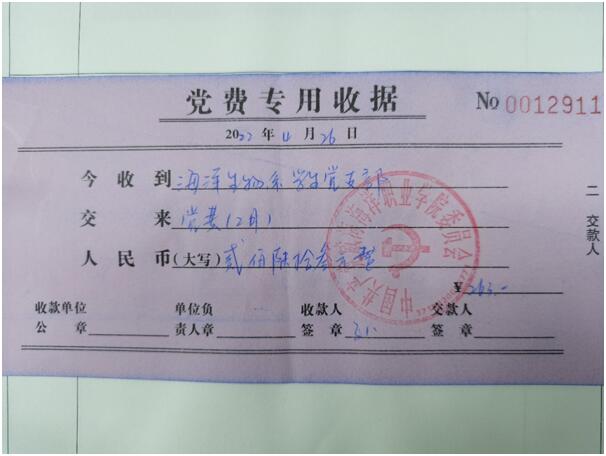 党费专用收据
No 0012911
2022年4月26日
今收到海洋生物系学生党支部
交来党费(2月)
人民币(大写)贰佰陆拾叁元整
¥263.—
收款单位公章
单位负责人章
收款人签章
交款人签章
二 交款人
海洋职业学院委员会
中国共产